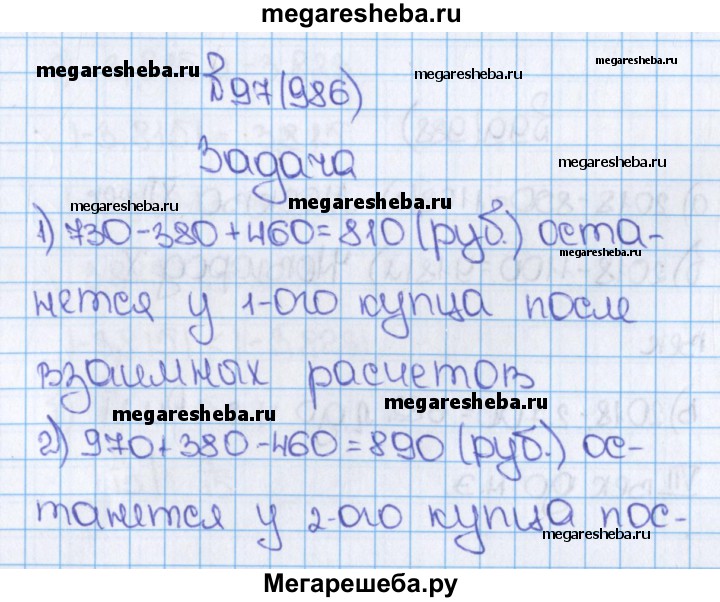 megaresheba.ru
megaresheba.ru
megaresheba.ru
megaresheba.ru
№97(986)
Задача
megaresheba.ru
megaresheba.ru
megaresheba.ru
1) 730-380+460=810 (руб.) оста-
megaresheba.ru
нется у 1-ого купца после
взаимных расчетов
megaresheba.ru
megaresheba.ru
2) 970+380-460=890 (руб.) ос-
танется у 2-ого купца пос-
megaresheba.ru
Мегарешеба.ру